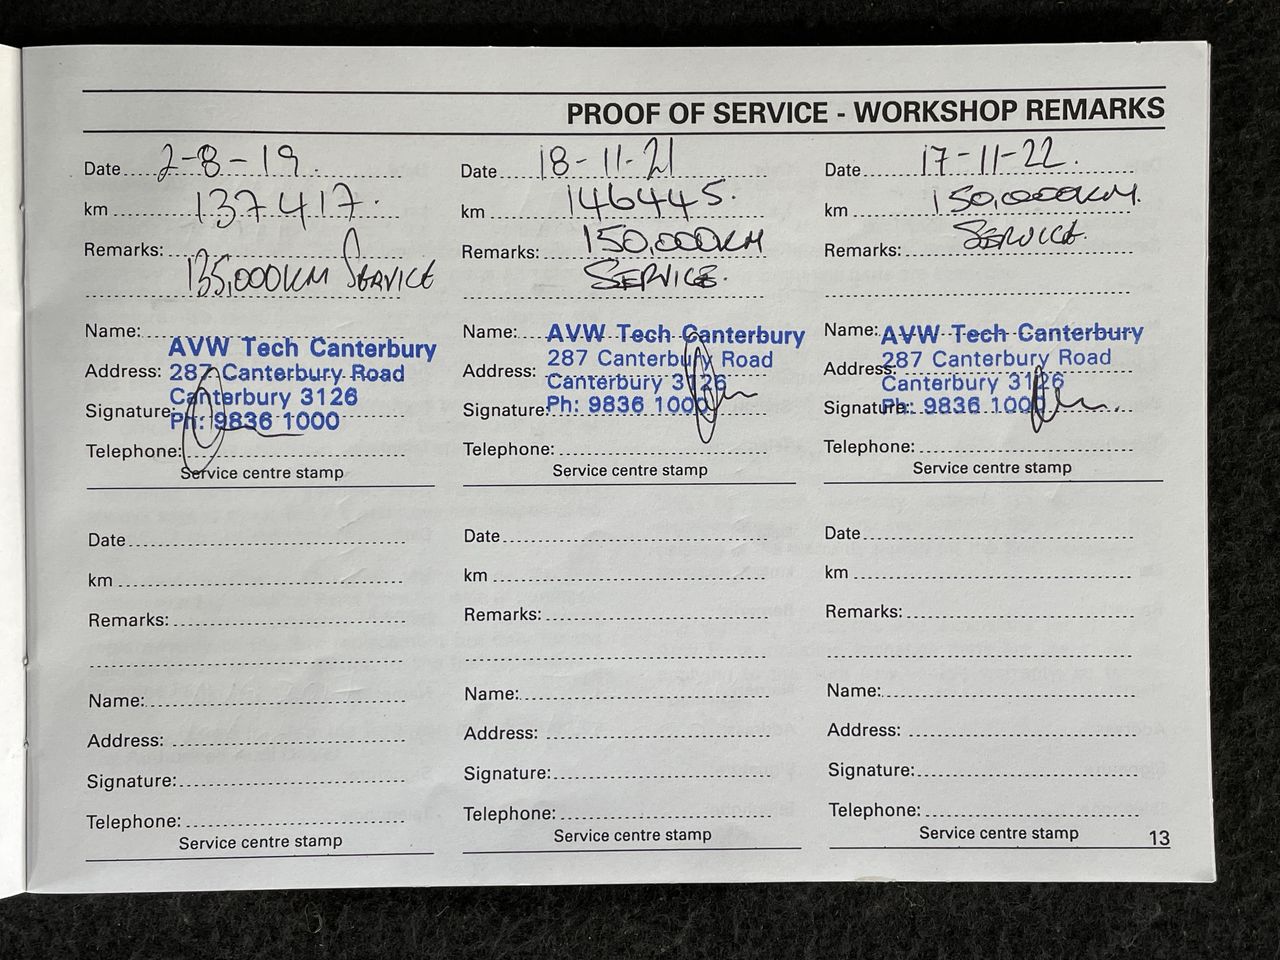 PROOF OF SERVICE - WORKSHOP REMARKS
Date 2-8-19.
km 137417.
Remarks:
135,000KM SERVICE
Name:
AVW Tech Canterbury
Address: 287 Canterbury Road
Canterbury 3126
Signature:
Ph: 9836 1000
Telephone:
Service centre stamp
Date 18-11-21
km 146445.
Remarks: 150,000KM
SERVICE.
Name: AVW Tech Canterbury
287 Canterbury Road
Address:
Canterbury 3126
Signature: Ph: 9836 1000
Telephone:
Service centre stamp
Date 17-11-22.
km 150,000KM.
Remarks: SERVICE.
Name: AVW Tech Canterbury
287 Canterbury Road
Address:
Canterbury 3126
Signature: Ph: 9836 1000
Telephone:
Service centre stamp
Date
km
Remarks:
Name:
Address:
Signature:
Telephone:
Service centre stamp
Date
km
Remarks:
Name:
Address:
Signature:
Telephone:
Service centre stamp
Date
km
Remarks:
Name:
Address:
Signature:
Telephone:
Service centre stamp
13